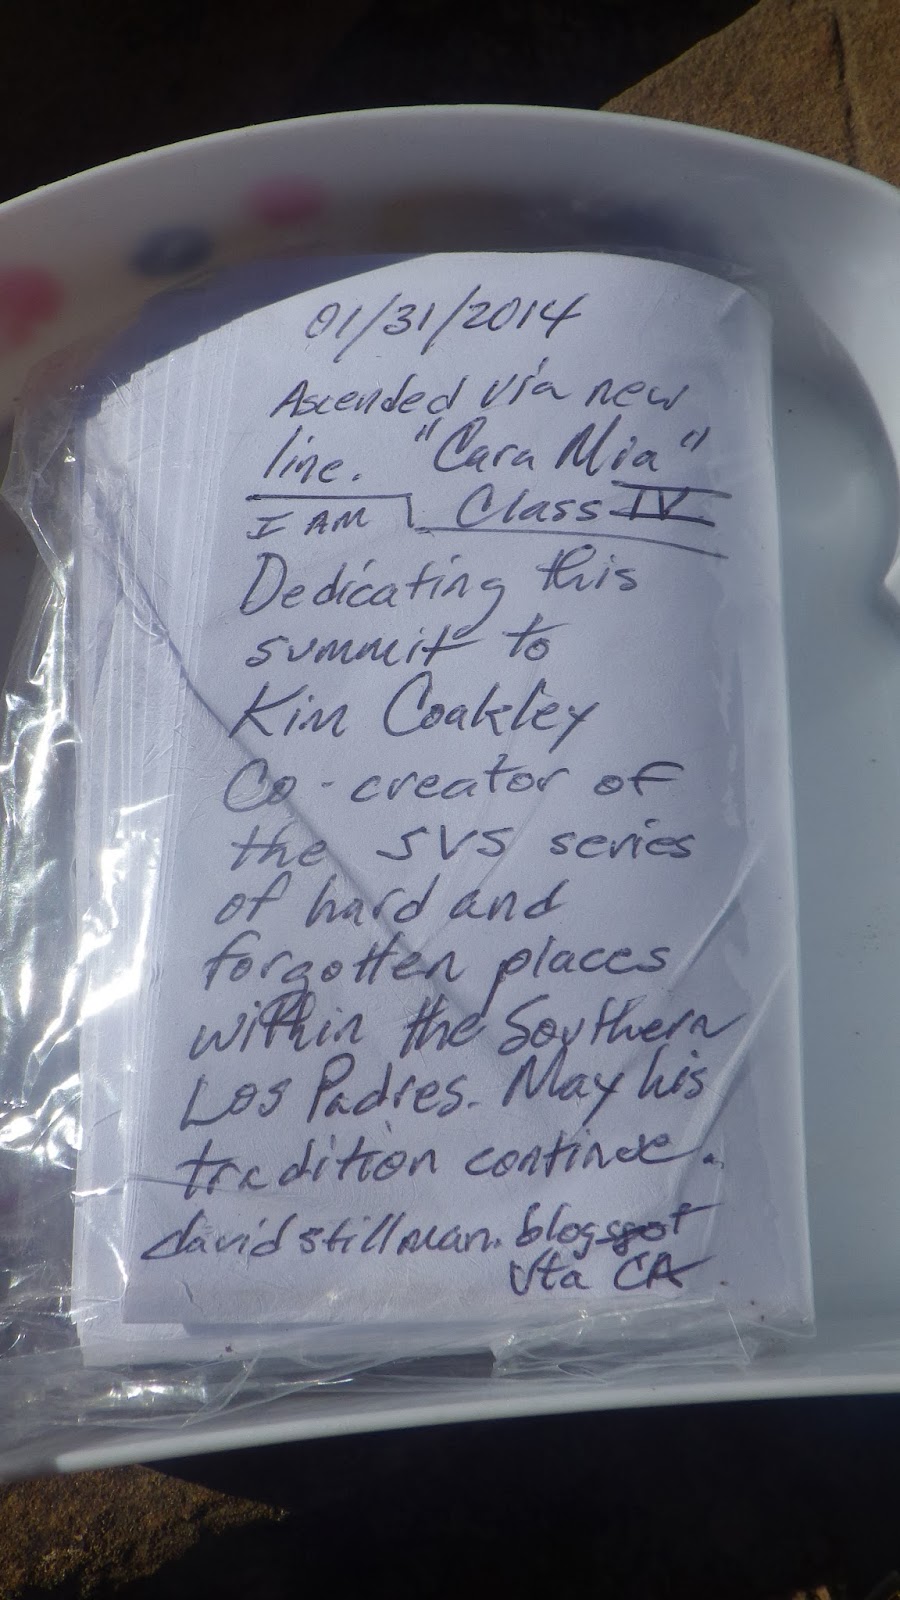 01/31/2014
Ascended via new
line. "Cara Mia"
Class IV
I AM
Dedicating this
summit to
Kim Coakley
Co-creator of
the SVS series
of hard and
forgotten places
within the Southern
Los Padres. May his
tradition continue.
davidstillman.blogspot
Vta CA.